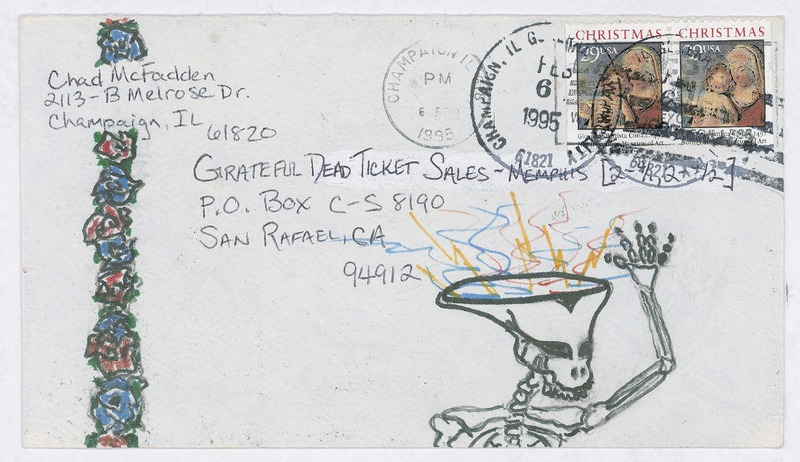 Chad McFadden
2113-B Melrose Dr.
Champaign, IL
61820
GRATEFUL DEAD TICKET SALES - MEMPHIS
P.O. BOX C-S 8190
SAN RAFAEL, CA
94912
CHAMPAIGN IL
PM
6
1995
CHAMPAIGN, IL
FEB
6
1995
61821
CHRISTMAS
29 USA
CHRISTMAS
29 USA